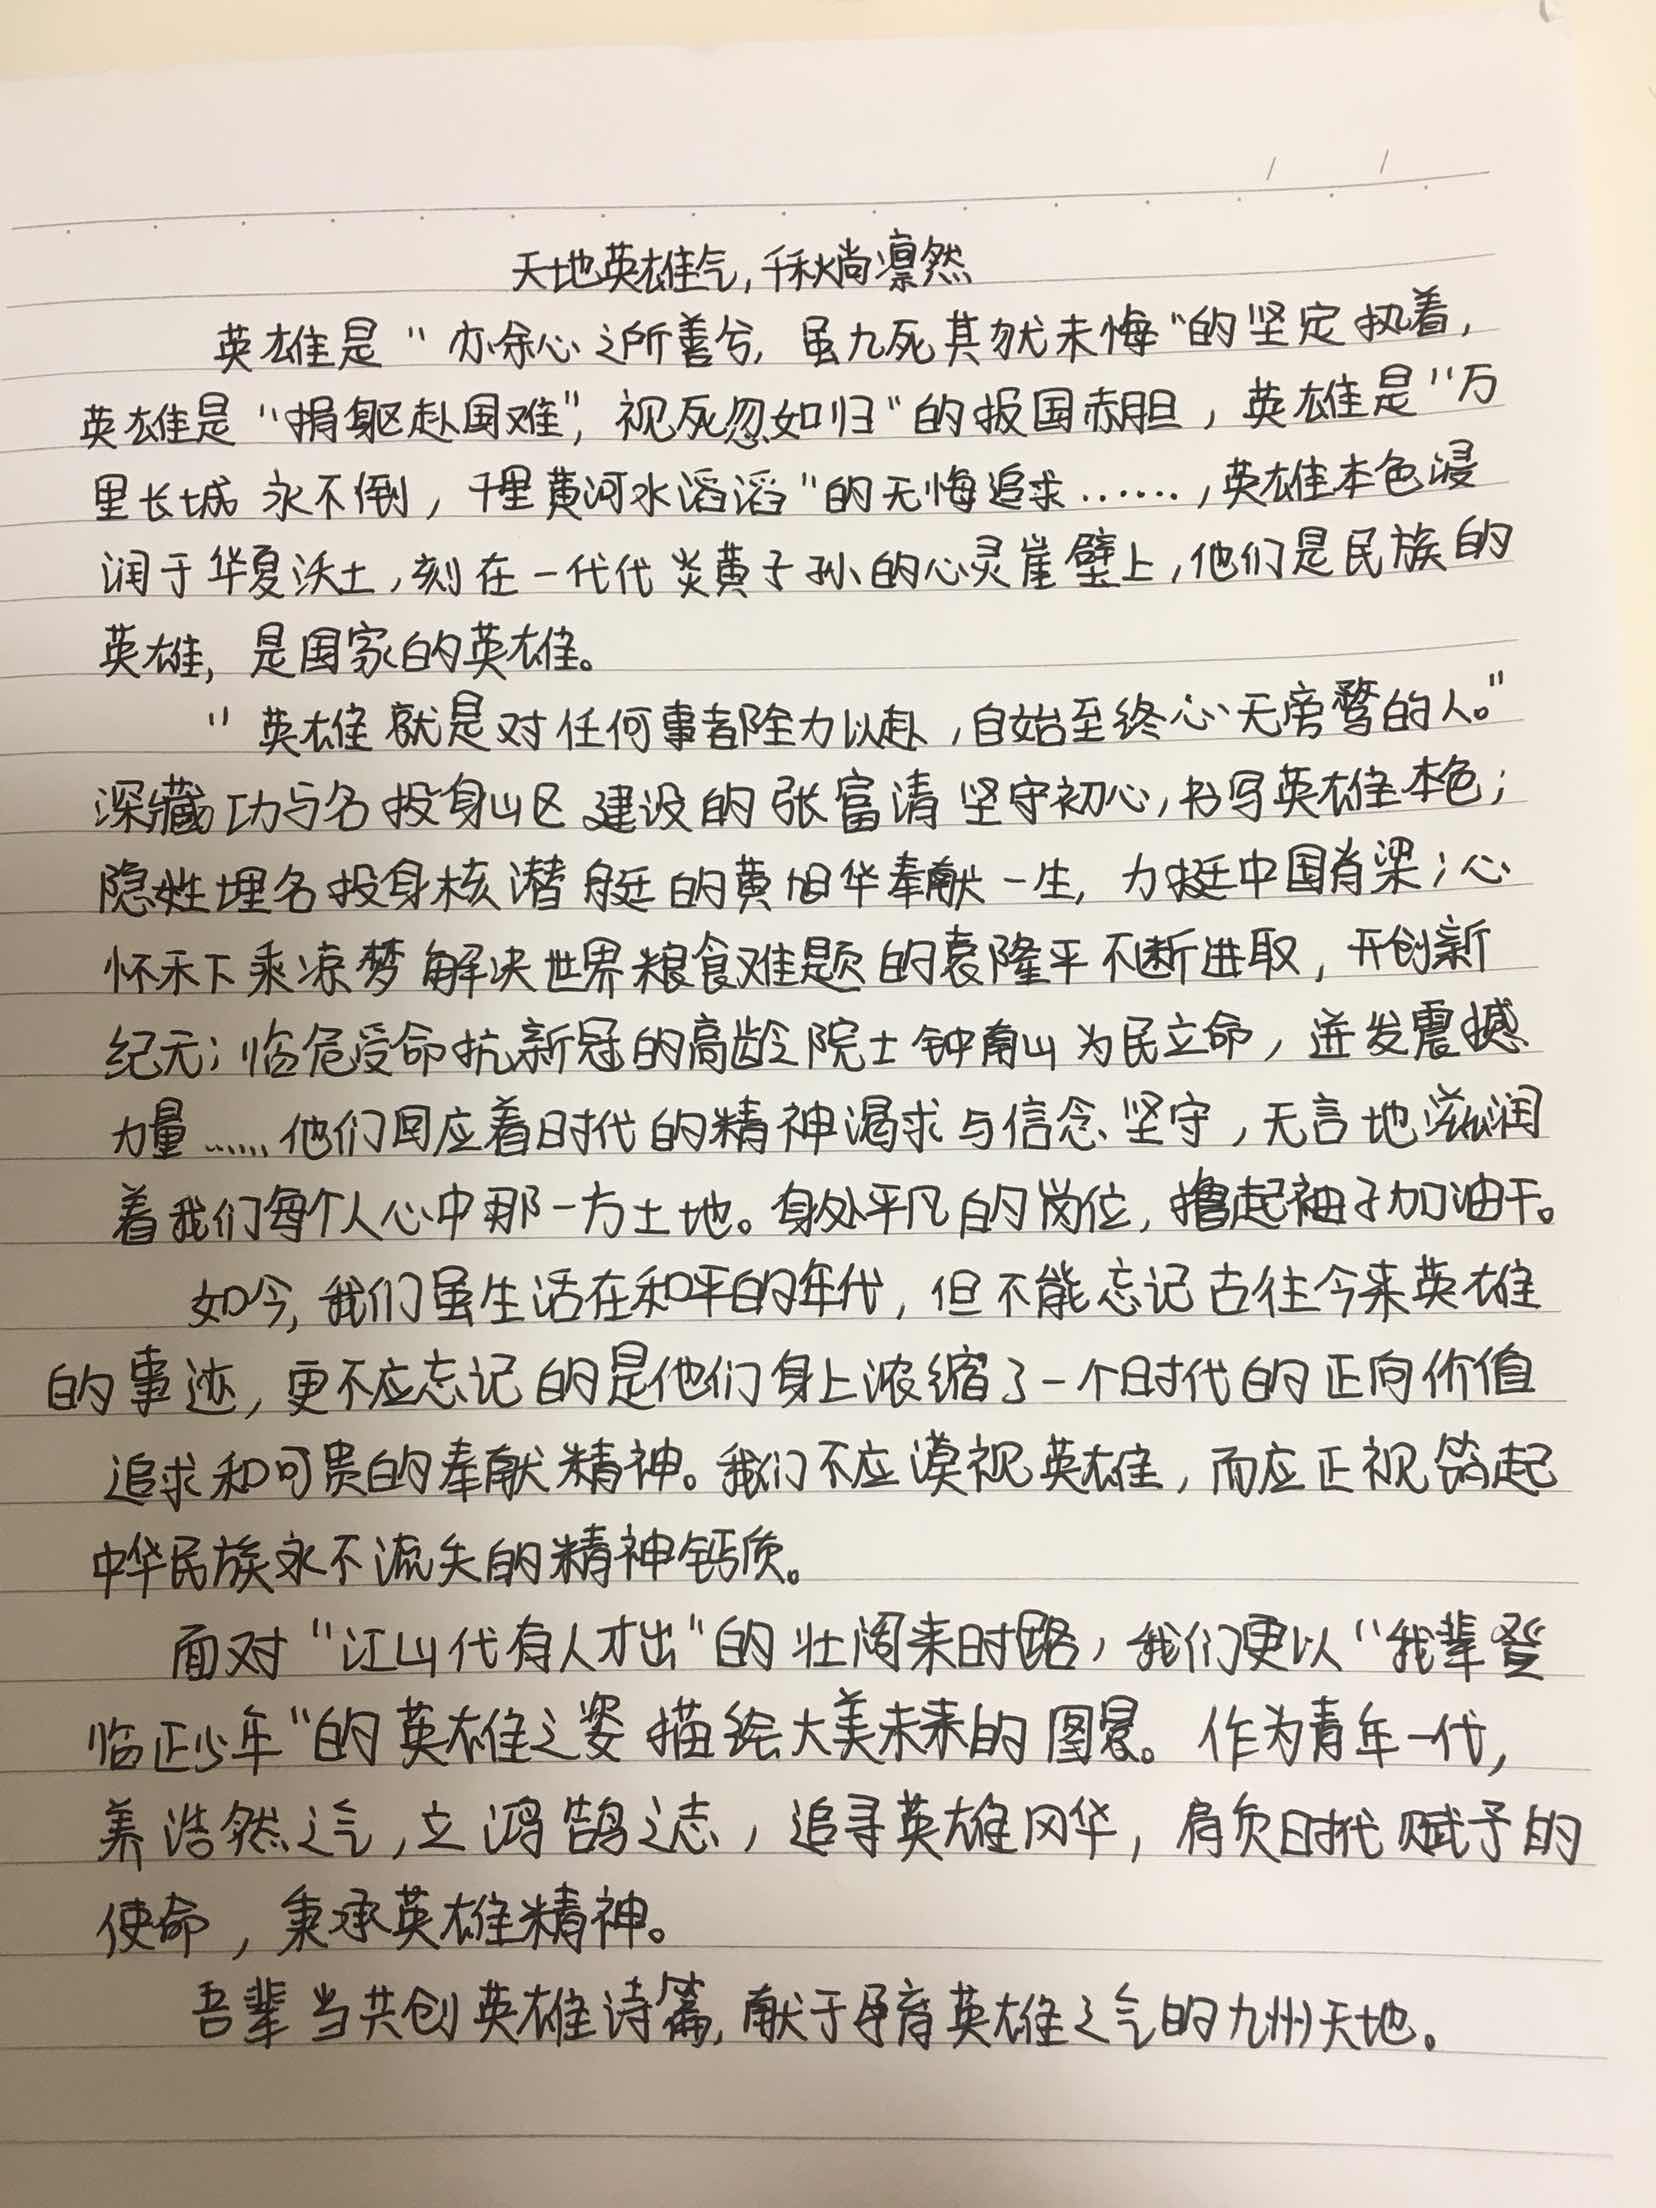 天地英雄气,千秋尚凛然
英雄是“亦余心之所善兮,虽九死其犹未悔”的坚定执着,
英雄是“捐躯赴国难”,视死忽如归“的报国赤胆,英雄是“万
里长城永不倒,千里黄河水滔滔”的无悔追求……,英雄本色浸
润于华夏沃土,刻在一代代炎黄子孙的心灵崖壁上,他们是民族的
英雄,是国家的英雄。
“英雄就是对任何事都全力以赴,自始至终心无旁骛的人。”
深藏功与名投身山区建设的张富清坚守初心,书写英雄本色;
隐姓埋名投身核潜艇的黄旭华奉献一生,力挺中国脊梁;心
怀禾下乘凉梦解决世界粮食难题的袁隆平不断进取,开创新
纪元;临危受命抗新冠的高龄院士钟南山为民立命,迸发震撼
力量……他们回应着时代的精神渴求与信念坚守,无言地滋润
着我们每个人心中那一方土地。身处平凡的岗位,撸起袖子加油干。
如今,我们虽生活在和平的年代,但不能忘记古往今来英雄
的事迹,更不应忘记的是他们身上浓缩了一个时代的正向价值
追求和可贵的奉献精神。我们不应漠视英雄,而应正视筑起
中华民族永不流失的精神钙质。
面对“江山代有人才出”的壮阔来时路,我们更以“我辈登
临正少年”的英雄之姿描绘大美未来的图景。作为青年一代,
养浩然之气,立鸿鹄之志,追寻英雄风华,肩负时代赋予的
使命,秉承英雄精神。
吾辈当共创英雄诗篇,献于孕育英雄之气的九州天地。